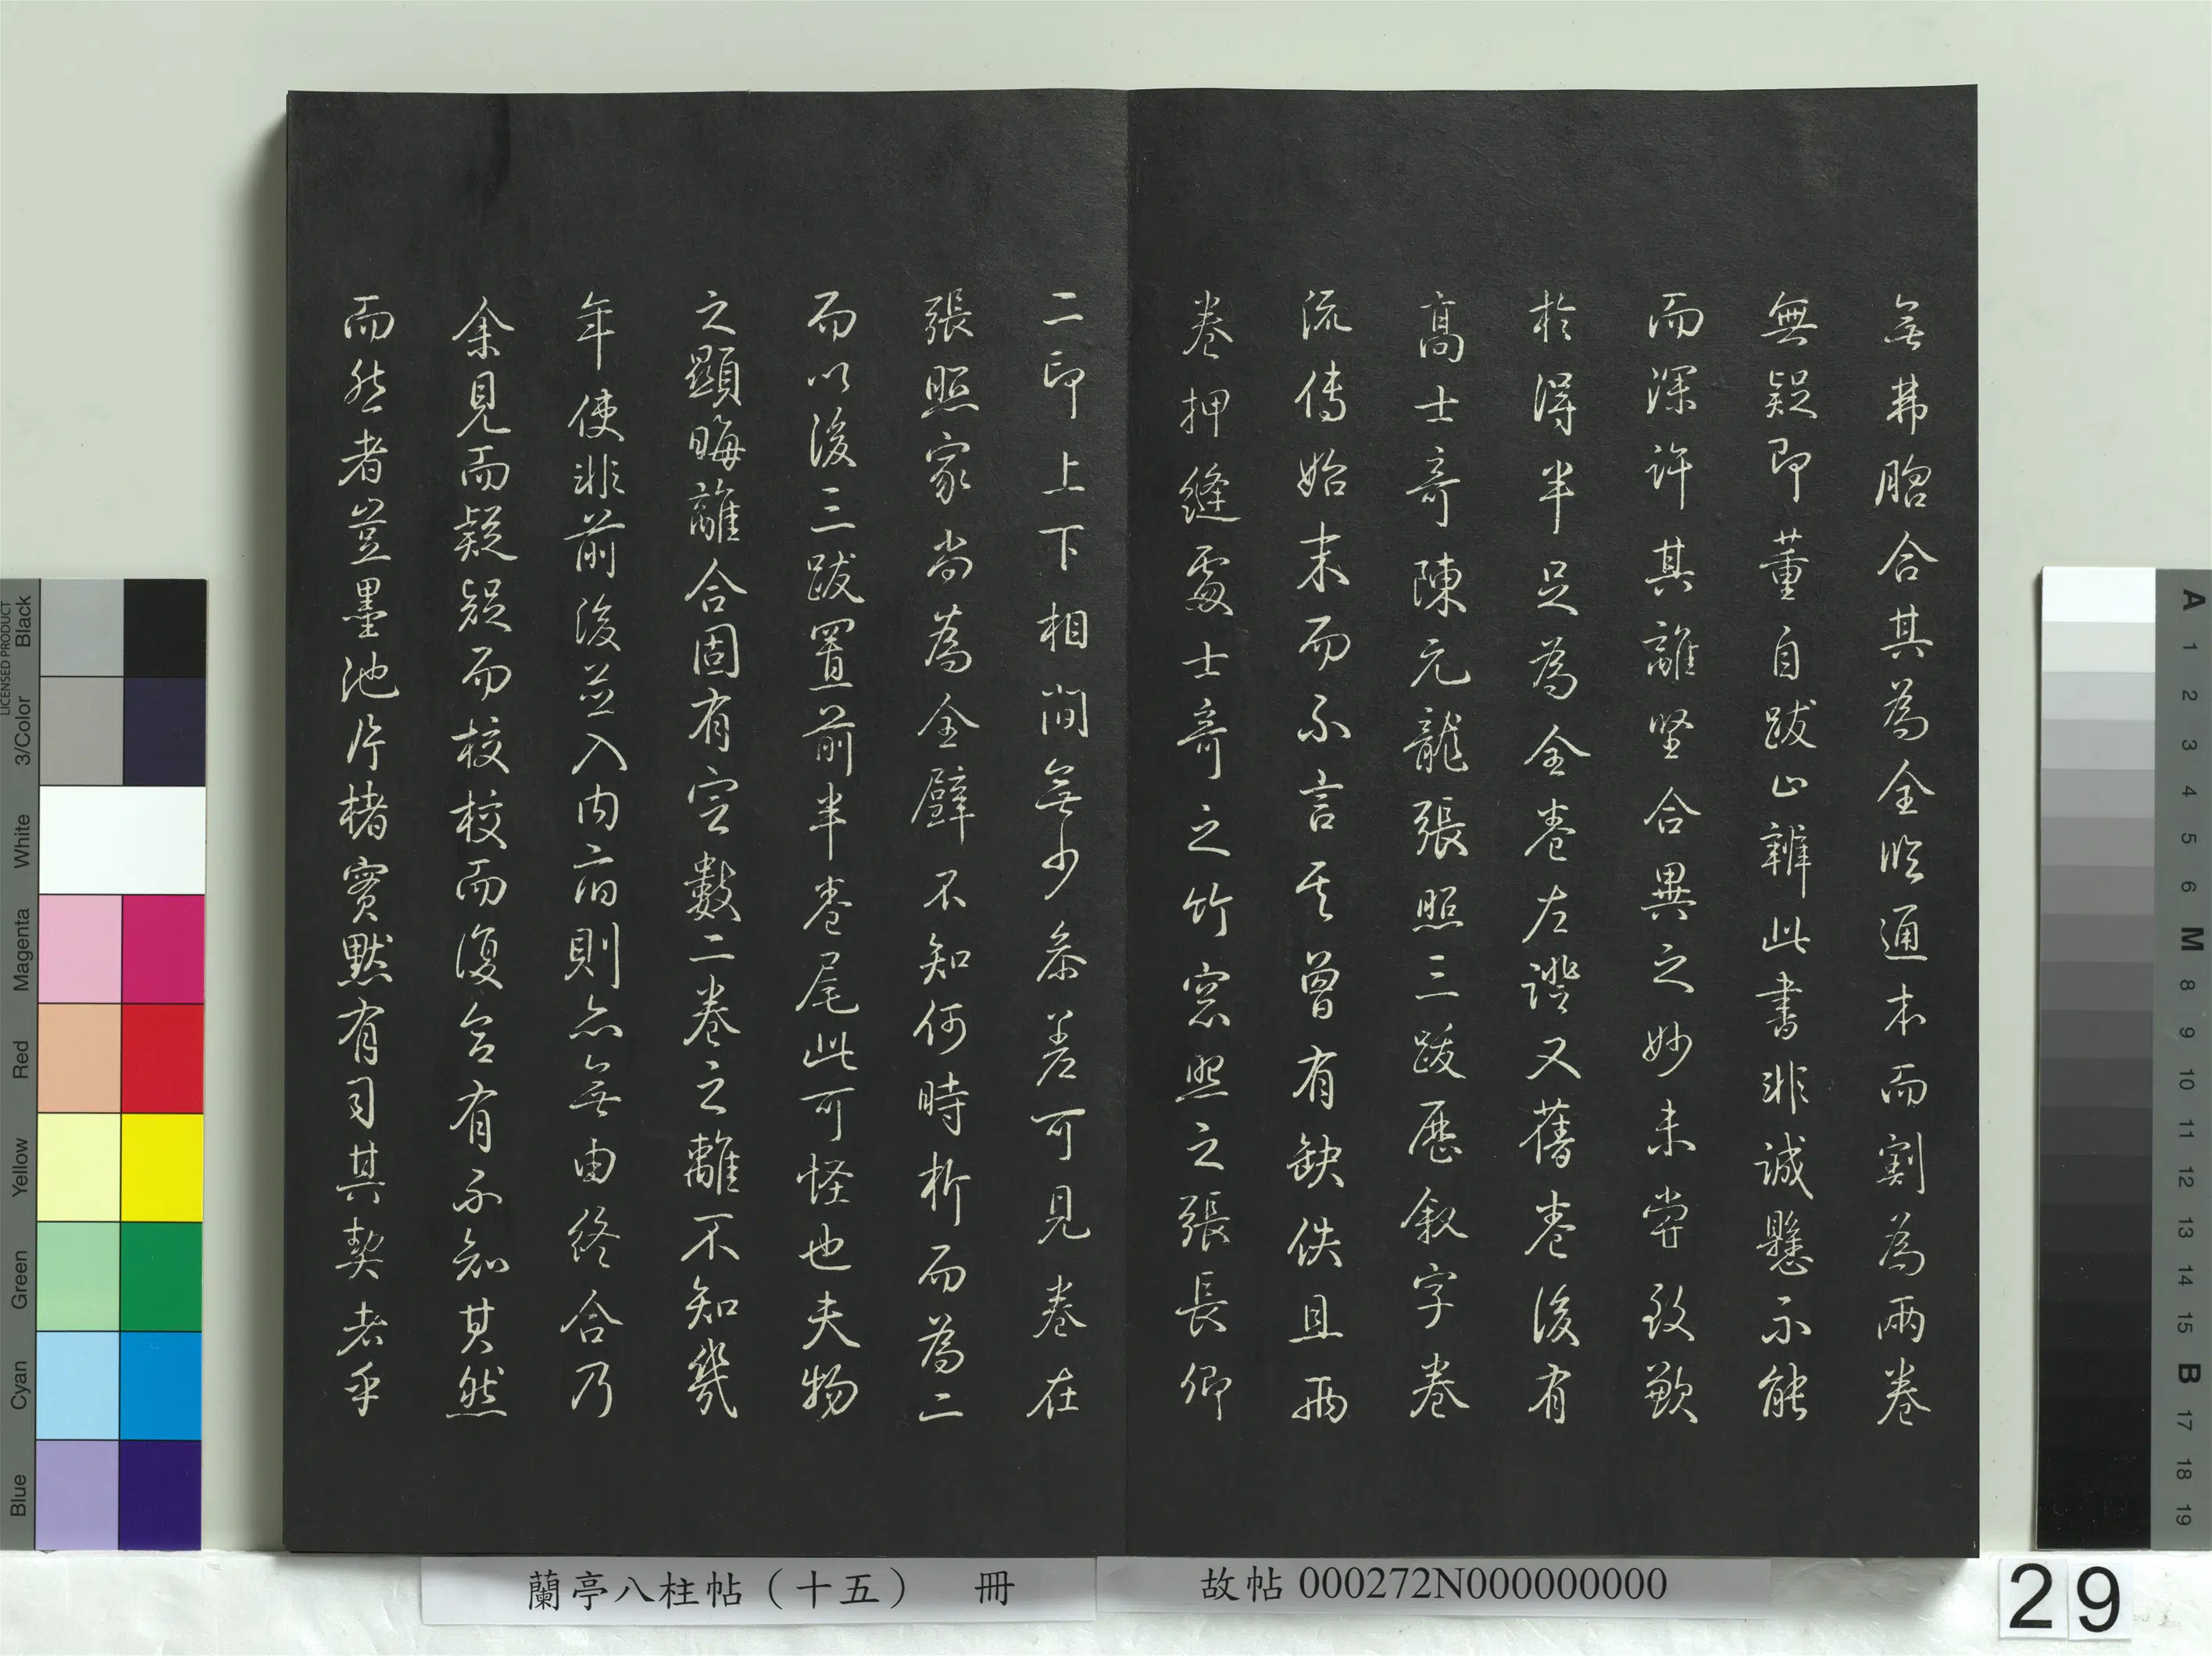 无弗脗合其為全臨通本而割為兩卷
無疑即董自跋亦辨此書非誠懸不能
而深許其離堅合異之妙未嘗致歉
於得半足為全卷左證又舊卷後有
高士奇陳元龍張照三跋歷叙字卷
流傳始末而不言其曾有缺佚且兩
卷押縫處士奇之竹窓照之張長卿
二印上下相間無少參差可見卷在
張照家尚為全璧不知何時析而為二
而以後三跋置前半卷尾此可怪也夫物
之顯晦離合固有定數二卷之離不知幾
年使非前後並入內府則亦無由終合乃
余見而疑疑而校校而復合有不知其然
而然者豈墨池片楮實默有司其契者乎
蘭亭八柱帖（十五） 冊
故帖 000272N000000000
29
LICENSED PRODUCT
Black
3/Color
White
Magenta
Red
Yellow
Green
Cyan
Blue
A
1
2
3
4
5
6
M
8
9
10
11
12
13
14
15
B
17
18
19